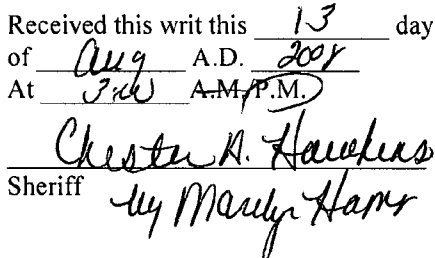 Received this writ this 13 day
of Aug A.D. 2008
At 3:00 A.M./P.M.
Chester A. Hawkins
Sheriff by Marilyn